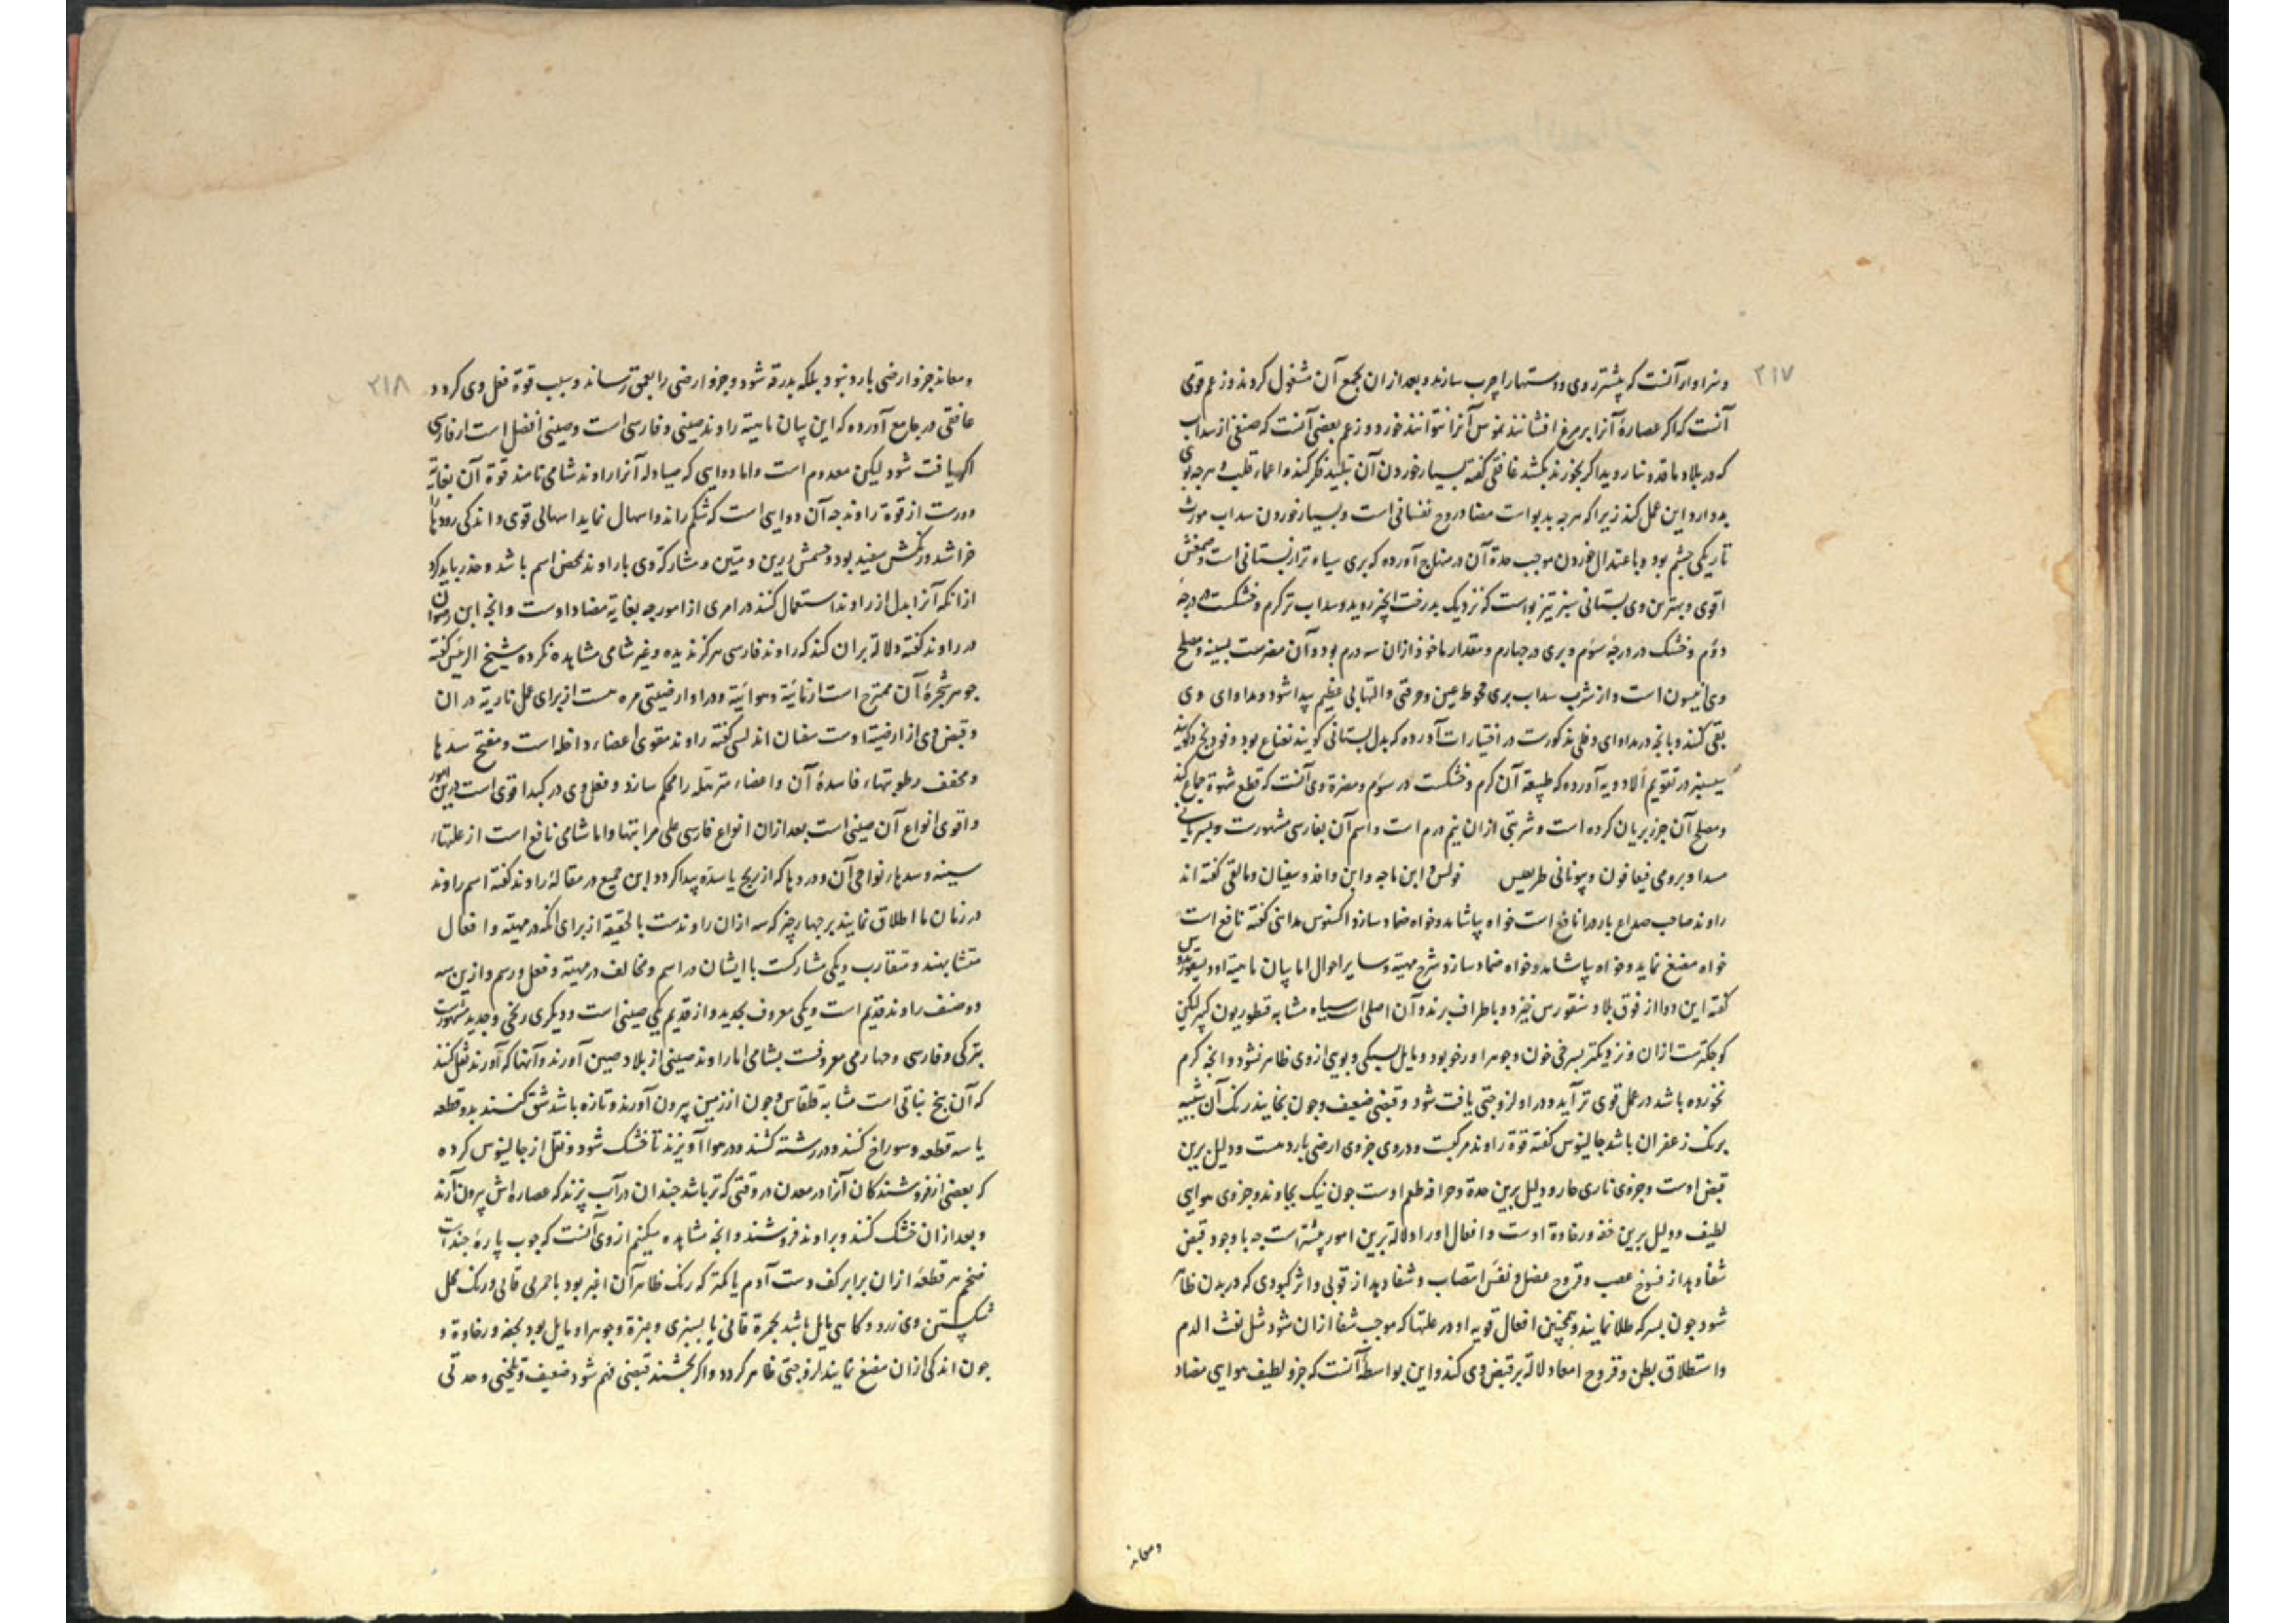 ۲۱۷
وسزاوار آنست که پیشتر روی و دستها را چرب سازند و بعد از ان بجمع آن مشغول کردند و زعم قوی
آنست که اکر عصارهٔ آنرا بر مرغ افشانند نموس آنرا نتوانند خورد و زعم بعضی آنست که صنفی از سداب
که در بلاد ما قدونیا روید اکر بخورند بکشد غافقی کفته بسیار خوردن آن تبلید فکر کند و اعماء قلب و هر چه بوی
بد دارد این عمل کند زیرا که هر چه بدبو است مضاد روح نفسانی است و بسیار خوردن سداب مورث
تاریکی چشم بود و باعتدال خوردن موجب حدة آن در منهاج آورده که بری سیاه تر از بستانی است و صمغش
اقوی و بهترین وی بستانی سبز تیز بو است که نزدیک بدرخت انجیر روید و سداب تر کرم و خشکست در درجهٔ
دوم و خشک در درجهٔ سوم و بری در چهارم و مقدار ماخوذ ازان سه درم بود و آن مضرست بسینه و مصلح
وی انیسون است و از شرب سداب بری جحوظ عین و حرقتی و التهابی عظیم پیدا شود و مداوای وی
بقی کنند و بانچه در مداوای دفلی مذکورست در اختیارات آورده که بدل بستانی کویند نعناع بود و فودنج و کویند
سیسنبر در تقویم الادویه آورده که طبیعة آن کرم و خشکست در سوم و مضرة وی آنست که قطع شهوة جماع کند
و مصلح آن جزر بریان کرده است و شربتی ازان نیم درم است و اسم آن بفارسی مشهورست و بسریانی
سدا و برومی فیعانون و بیونانی طریفس فولس و ابن ماجه و ابن وافد و سفیان و مالقی کفته اند
راوند صاحب صداع بارد را نافع است خواه بیاشامد و خواه ضماد سازد اکسنوس مداینی کفته نافع است
خواه مضغ نماید و خواه بیاشامد و خواه ضماد سازد شرح مهیة و سایر احوال اما بیان ماهیة او دیسقوریدوس
کفته این دوا از فوق بلاد سنقورس خیزد و باطراف برند و آن اصلی است سیاه مشابه قنطوریون کبیر لیکن
کوچکترست ازان و نزدیکتر بسرخی خون و جوهر او رخو بود و مایل بسبکی و بویی ازوی ظاهر نشود و انچه کرم
نخورده باشد در عمل قوی تر آید و در او لزوجتی یافت شود و قبضی ضعیف و چون بخایند رنک آن شبیه
برنک زعفران باشد جالینوس کفته قوة راوند مرکبست و در وی جزوی ارضی بارد هست و دلیل برین
قبض اوست و جزوی ناری حار و دلیل برین حدة و حرافة طعم اوست چون نیک بجاوند و جزوی هوایی
لطیف و دلیل برین خفة و رخاوة اوست و افعال او را دلالة برین امور بیشتر است چه با وجود قبض
شفا دهد از فسوخ عصب و قروح عضل و نفس انتصاب و شفا دهد از قوبی و اثر کبودی که در بدن ظاهر
شود چون بسرکه طلا نمایند و همچنین افعال قویه او در علتها که موجب شفا ازان شود مثل نفث الدم
واستطلاق بطن و قروح امعا دلالة بر قبض وی کند و این بواسطهٔ آنست که جزو لطیف هوایی مضاد
ومعاند
۲۱۸
ومعاند جزو ارضی بارد نبود بلکه بدرقه شود و جزو ارضی را بعمق رساند و سبب قوة فعل وی کردد
غافقی در جامع آورده که این بیان ماهیة راوند صینی و فارسی است و صینی افضل است از فارسی
اکر یافت شود لیکن معدوم است و اما دوایی که صیادله آنرا راوند شامی نامند قوة آن بغایة
دورست از قوة راوند چه آن دوایی است که شکم راند و اسهال نماید اسهالی قوی و اندکی رودها را
خراشد و رنکش سفید بود و جسمش رزین و متین و مشارکة وی با راوند محض اسم باشد و حذر باید کرد
ازانکه آنرا بدل از راوند استعمال کنند در امری از امور چه بغایة مضاد اوست و انچه ابن رضوان
در راوند کفته دلالة بران کند که راوند فارسی هرکز ندیده و غیر شامی مشاهده نکرده شیخ الرئیس کفته
جوهر شجرهٔ آن ممتزج است از مائیة و هوائیة و در او ارضیتی مره هست از برای عمل ناریة در ان
و قبض وی از ارضیة اوست سفیان اندلسی کفته راوند مقوی اعضاء داخله است و مفتح سدها
و مجفف رطوبتهاء فاسدهٔ آن و اعضاء مترهله را محکم سازد و فعل وی در کبد اقوی است درین امور
و اقوی انواع آن صینی است بعد ازان انواع فارسی علی مراتبها و اما شامی نافع است از علتهاء
سینه و سدها نواحی آن و دردها که از ریح یا سده پیدا کردد ابن جمیع در مقالهٔ راوند کفته اسم راوند
در زمان ما اطلاق نمایند بر چهار چیز که سه ازان راوندست بالحقیقة از برای انکه در مهیة و افعال
متشابهند و متقارب و یکی مشارکست با ایشان در اسم و مخالف در مهیة و فعل و رسم و ازین سه
دو صنف راوند قدیم است و یکی معروف بجدید و از قدیم یکی صینی است و دیکری زنجی و جدید مشهورست
بترکی و فارسی و چهارمی معروفست بشامی اما راوند صینی از بلاد صین آورند و آنها که آورند نقل کنند
که آن بیخ نباتی است مشابه قلقاس و چون از زمین بیرون آورند و تازه باشد شق کنند بدو قطعه
یا سه قطعه و سوراخ کنند و در رشته کشند و در هوا آویزند تا خشک شود و نقل از جالینوس کرده
که بعضی از فروشندکان آنرا در معدن در وقتی که تر باشد چندان در آب پزند که عصاره اش بیرون آرند
و بعد ازان خشک کنند و براوند فروشند و انچه مشاهده میکنیم ازوی آنست که چوب پارهٔ چندست
ضخم هر قطعهٔ ازان برابر کف دست آدم یا کمتر که رنک ظاهر آن اغبر بود با حمرتی قانی و رنک محل
شکستن وی زرد و کاهی مایل باشد بحمرة قانی یا بسبزی و جوهر او مایل بود بخفة و رخاوة و
چون اندکی ازان مضغ نمایند لزوجتی ظاهر کردد و اکر بچشند قبضی فهم شود ضعیف و تلخی و حدتی